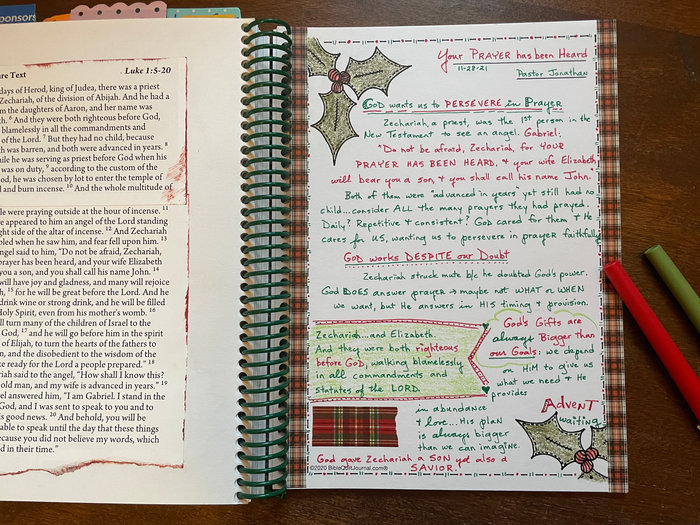 ponsors
re Text
Luke 1:5-20
days of Herod, king of Judea, there was a priest
Zechariah, of the division of Abijah. And he had a
m the daughters of Aaron, and her name was
h. 6 And they were both righteous before God,
blamelessly in all the commandments and
of the Lord. 7 But they had no child, because
h was barren, and both were advanced in years. 8
ile he was serving as priest before God when his
was on duty, 9 according to the custom of the
d, he was chosen by lot to enter the temple of
and burn incense. 10 And the whole multitude of
le were praying outside at the hour of incense. 11
re appeared to him an angel of the Lord standing
ght side of the altar of incense. 12 And Zechariah
bled when he saw him, and fear fell upon him. 13
ngel said to him, "Do not be afraid, Zechariah,
prayer has been heard, and your wife Elizabeth
you a son, and you shall call his name John. 14
will have joy and gladness, and many will rejoice
h, 15 for he will be great before the Lord. And he
drink wine or strong drink, and he will be filled
Holy Spirit, even from his mother's womb. 16
ll turn many of the children of Israel to the
God, 17 and he will go before him in the spirit
of Elijah, to turn the hearts of the fathers to
n, and the disobedient to the wisdom of the
e ready for the Lord a people prepared." 18
riah said to the angel, "How shall I know this?
old man, and my wife is advanced in years." 19
el answered him, "I am Gabriel. I stand in the
God, and I was sent to speak to you and to
s good news. 20 And behold, you will be
able to speak until the day that these things
ecause you did not believe my words, which
d in their time."
Your PRAYER has been Heard
11-28-21
Pastor Jonathan
GOD wants us to PERSEVERE in Prayer
Zechariah, a priest, was the 1st person in the
New Testament to see an angel. Gabriel:
"Do not be afraid, Zechariah, for YOUR
PRAYER HAS BEEN HEARD, + your wife Elizabeth
will bear you a son, + you shall call his name John."
Both of them were "advanced in years" yet still had no
child...consider ALL the many prayers they had prayed.
Daily? Repetitive + consistent? God cared for them + He
cares for US, wanting us to persevere in prayer faithfully
GOD works DESPITE our Doubt
Zechariah struck mute b/c he doubted God's power.
God DOES answer prayer → maybe not WHAT or WHEN
we want, but He answers in HIS timing + provision.
Zechariah...and Elizabeth
And they were both righteous
before GOD, walking blamelessly
in all commandments and
statutes of the LORD.
God's Gifts are
always Bigger than
our Goals: we depend
on HIM to give us
what we need + He
provides
in abundance
+ love... His plan
is always bigger
than we can imagine.
God gave Zechariah a SON yet also a
SAVIOR!
ADVENT
waiting
©2020 BibleQuiltJournal.com®